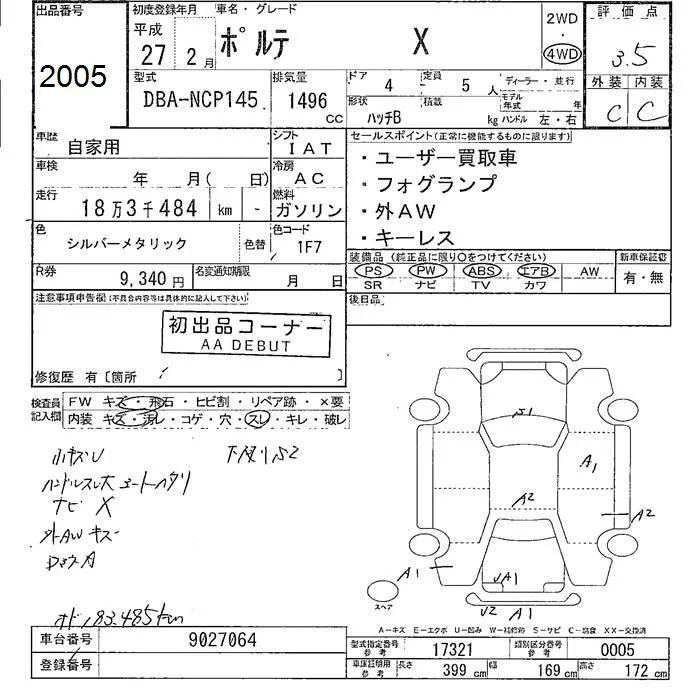 出品番号
2005
初度登録年月 車名・グレード
平成
27 2月 ポルテ X
2WD
4WD
評価点
3.5
外装 内装
C C
型式 排気量 ドア 定員 ディーラー・並行
DBA-NCP145 1496 CC 4 5 人
形状 積載 モデル年式 年
ハッチB kg ハンドル 左・右
車歴 自家用 シフト IAT
車検 年 月( 日) 冷房 AC
走行 18万3千484 km - 燃料 ガソリン
色 シルバーメタリック 色替 色コード 1F7
R券 9,340円 名変通知期限 月 日
セールスポイント(正常に機能するものに限ります)
・ユーザー買取車
・フォグランプ
・外AW
・キーレス
装備品 (純正品に限り○をつけてください) 新車保証書
PS PW ABS エアB AW 有・無
SR ナビ TV カワ
後日品
注意事項申告欄(不具合内容等は具体的に記入して下さい)
初出品コーナー
AA DEBUT
修復歴 有〔箇所 〕
検査員記入欄 FW キズ・飛石・ヒビ割・リペア跡・×要
内装 キズ・汚レ・コゲ・穴・スレ・キレ・破レ
小キズU
ナビ X
外AW キズ
オド183,485km
S1
A1
A2
A2
A1
UA1
U2 A1
スペア
A-キズ E-エクボ U-凹み W-補修跡 S-サビ C-腐食 XX-交換済
車台番号 9027064
登録番号
型式指定番号 参考 17321 類別区分番号 参考 0005
車庫証明用 参考 長さ 399 cm 幅 169 cm 高さ 172 cm